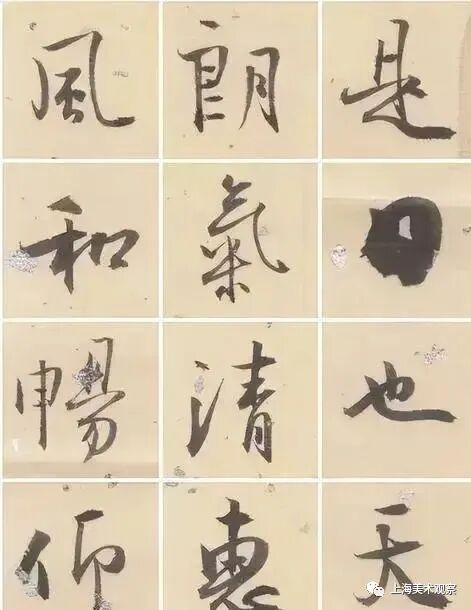 是日也天
朗氣清惠
風和暢仰
上海美术观察